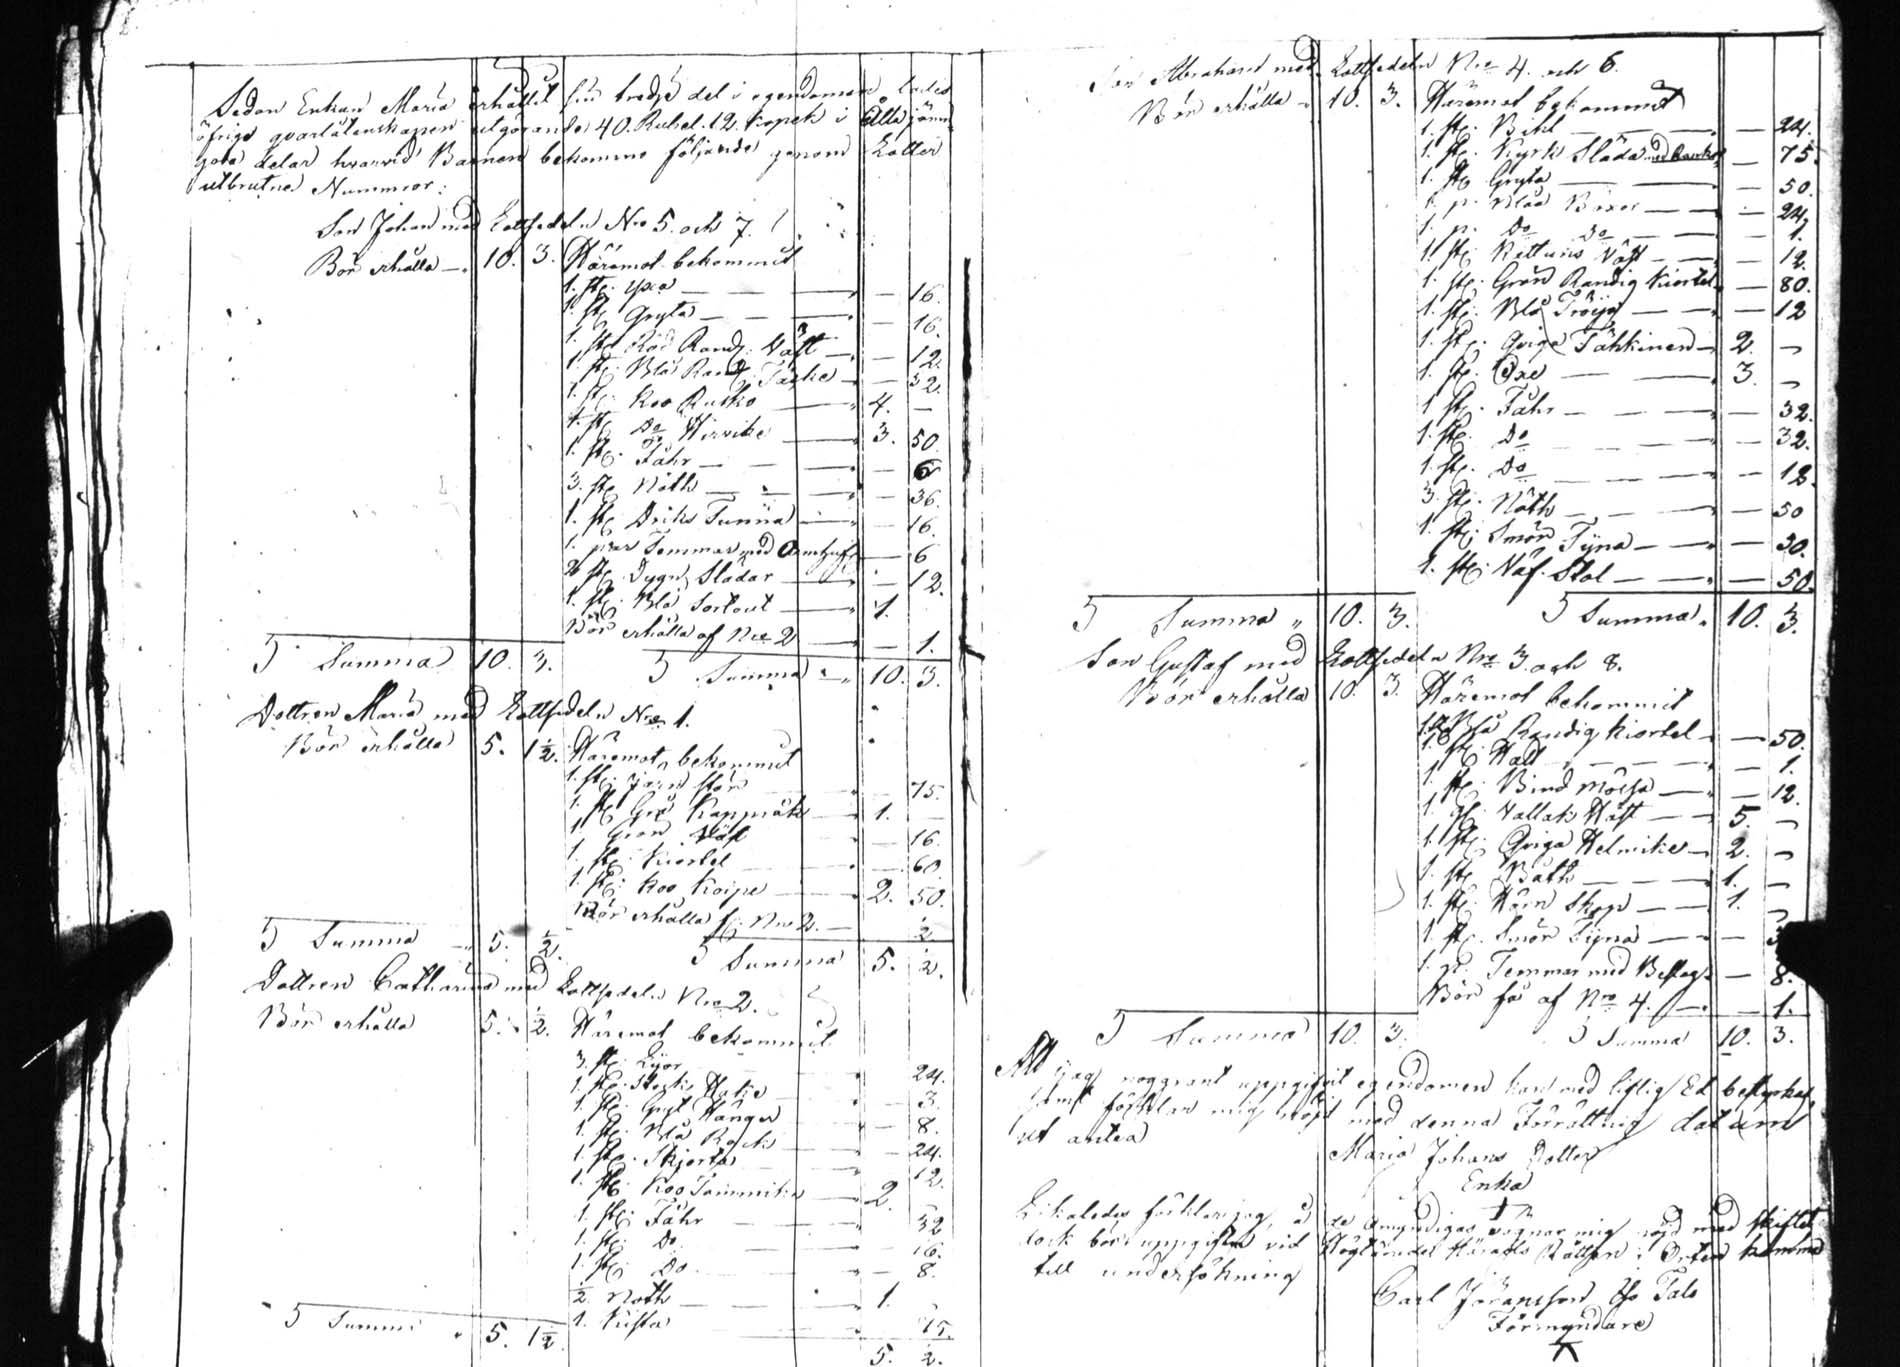 Sedan Enkan Maria erhållit sin tredje del i egendomen, lades
öfrige qvarlåtenskapen utgörande 40. Rubel. 12. kopek i otta jämn
goda delar hvarvid Barnen bekommo följande genom Lotter
utbrutne Nummror:
Son Johan med Lottsedeln Nro 5. och 7.
Bör erhålla 10. 3. Häremot bekommit
1. st. yxa — 16.
1. st. Gryta — 16.
1. st. Röd Rand. Väst — 12.
1. st. Blå Rand. — 32.
1. st. Koo Rusko 4. —
1. st. Do Hirvike 3. 50.
1. st. Fåhr — 6
3. st. Nöth — 36.
1. st. Driks Tunna — 16.
1. par Tömmar med — 6
2 st. Dygn Slädar — 12.
1. st. Blå Sortout 1.
Bör erhålla af Nro 2 — 1.
Summa 10. 3. Summa 10. 3.
Dottren Maria med Lottsedeln Nro 1.
Bör erhålla 5. 1½. Häremot bekommit
1. st. Järn stör 75.
1. st. Grå Kapprock 1. —
1. Grön — 16.
1. st. Kiortel — 60.
1. st. Koo Koipe 2. 50.
Bör erhålla Nro 2. ½
Summa 5. ½. Summa 5. ½.
Dottren Catharina med Lottsedeln Nro 2.
Bör erhålla 5. ½. Häremot bekommit
3. st. Lijor 24.
1. st. Hake — 3.
1. st. Gryt Hänger — 8.
1. st. Blå Rock — 24.
1. st. Skjorta 12.
1. st. Koo Tammike 2. —
1. st. Fåhr 32
1. st. Do 16.
1. st. Do — 8.
½ Nöth 1.
1. Kista 75.
Summa 5. 1½ 5. ½.
Son Abraham med Lottsedeln Nro 4. och 6.
Bör erhålla 10. 3. Häremot bekommit
1. st. — 24.
1. st. Kyrk Släda med — 75.
1. st. Gryta — 50.
1. p. Blåa Böxor — 24.
1. p. Do Do — 1.
1. st. Kattuns Väst — 12.
1. st. Grön Randig Kiortel — 80.
1. st. Blå Tröija — 12
1. st. Qviga Tähkinen 2. —
1. st. Oxe 3. —
1. st. Fåhr — 32.
1. st. Do — 32.
1. st. Do — 12.
3. st. Nöth — 50
1. st. Smör Tyna — 30.
1. st. Väf. Stol — 50.
Summa 10. 3. Summa 10. 3.
Son Gustaf med Lottsedeln Nro 3. och 8.
Bör erhålla 10. 3. Häremot bekommit
1. Blå Randig Kiortel — 50.
1. st. Hatt — 1.
1. st. Bind Mössa — 12.
1. st. Vallak Häst 5. —
1. st. Qviga Helmike 2. —
1. st. Båth 1. —
1. st. Hörn Skåp 1. —
1. st. Smör Tyna —
1. p. Tömmar med Beslag — 8.
Bör få af Nro 4. — 1.
Summa 10. 3. Summa 10. 3.
Att jag noggrant uppgifvit egendomen kan med liflig Ed bestyrkas,
samt förklar mig nöjd med denna Förrättning datum
ut antea
Maria Johans Dotter
Enka
Likaledes förklar jag, å de omyndigas vägnar mig nöjd med skiftet
dock bör uppgiften vid Häradts Rätten i Orten komma
till undersökning
Carl Göransson Tals
Förmyndare